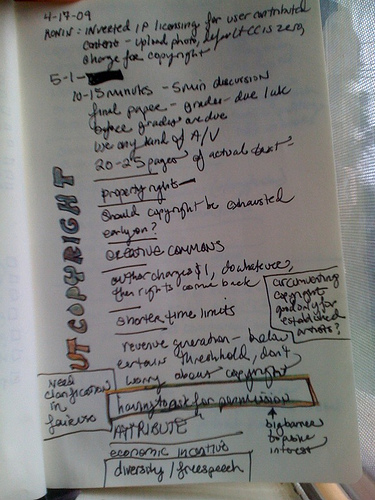 4-17-09
RONIN: inverted IP licensing for user contributed
content - upload photo, default CC is zero,
charge for copyright
5-1-
10-15 minutes - 5 min discussion
final paper - grades - due 1 wk
before grades are due
use any kind of A/V
20-25 pages of actual text -
property rights
should copyright be exhausted
early on?
CREATIVE COMMONS
author charges $1, do whatever,
then rights come back
shorter time limits
circumventing
copyright
good only for
established
artists?
revenue generation - below
certain threshold, don't
worry about copyright
UT COPYRIGHT
Need
clarification
in
fair use
having to ask for permission
ATTRIBUTE
big burner
to prove
interest
economic incentive
diversity / free speech